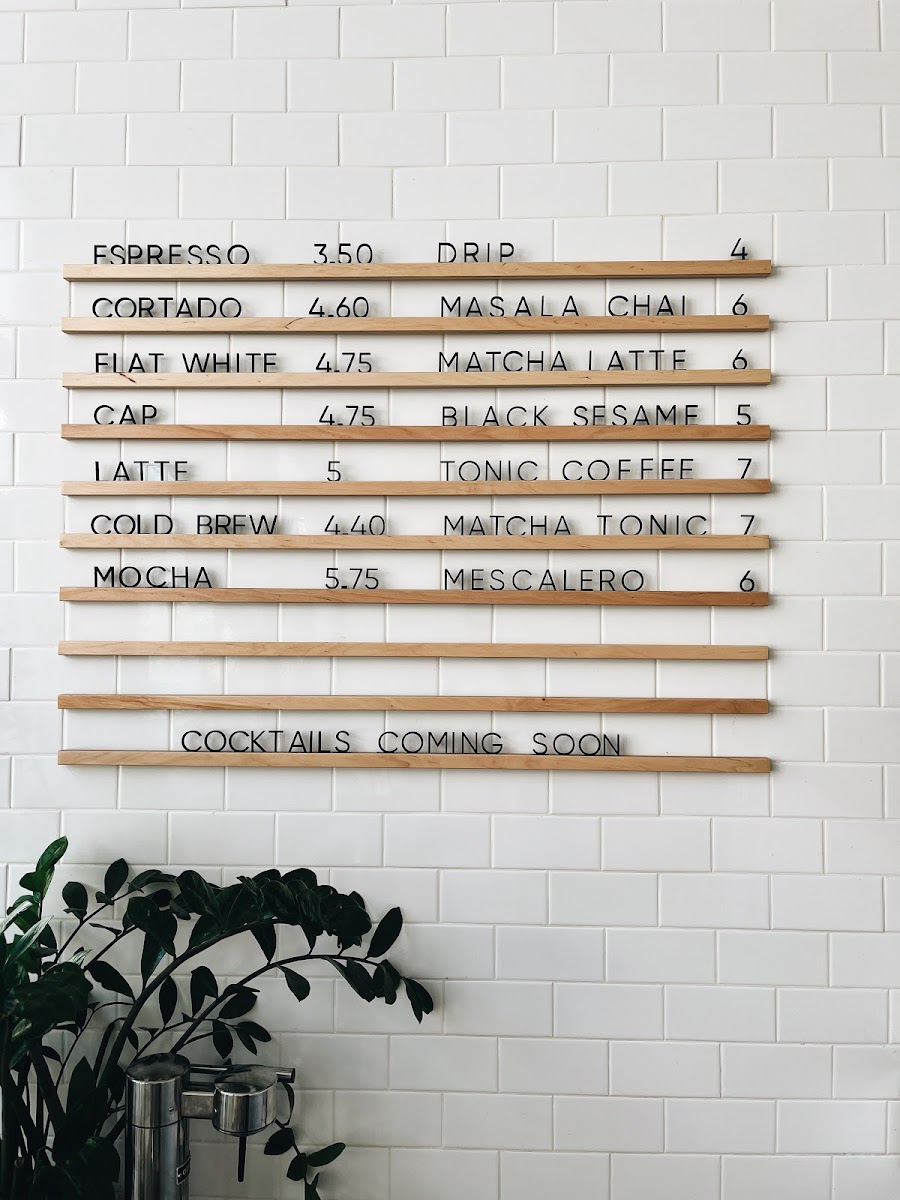 ESPRESSO 3.50 DRIP 4
CORTADO 4.60 MASALA CHAI 6
FLAT WHITE 4.75 MATCHA LATTE 6
CAP 4.75 BLACK SESAME 5
LATTE 5 TONIC COFFEE 7
COLD BREW 4.40 MATCHA TONIC 7
MOCHA 5.75 MESCALERO 6
COCKTAILS COMING SOON